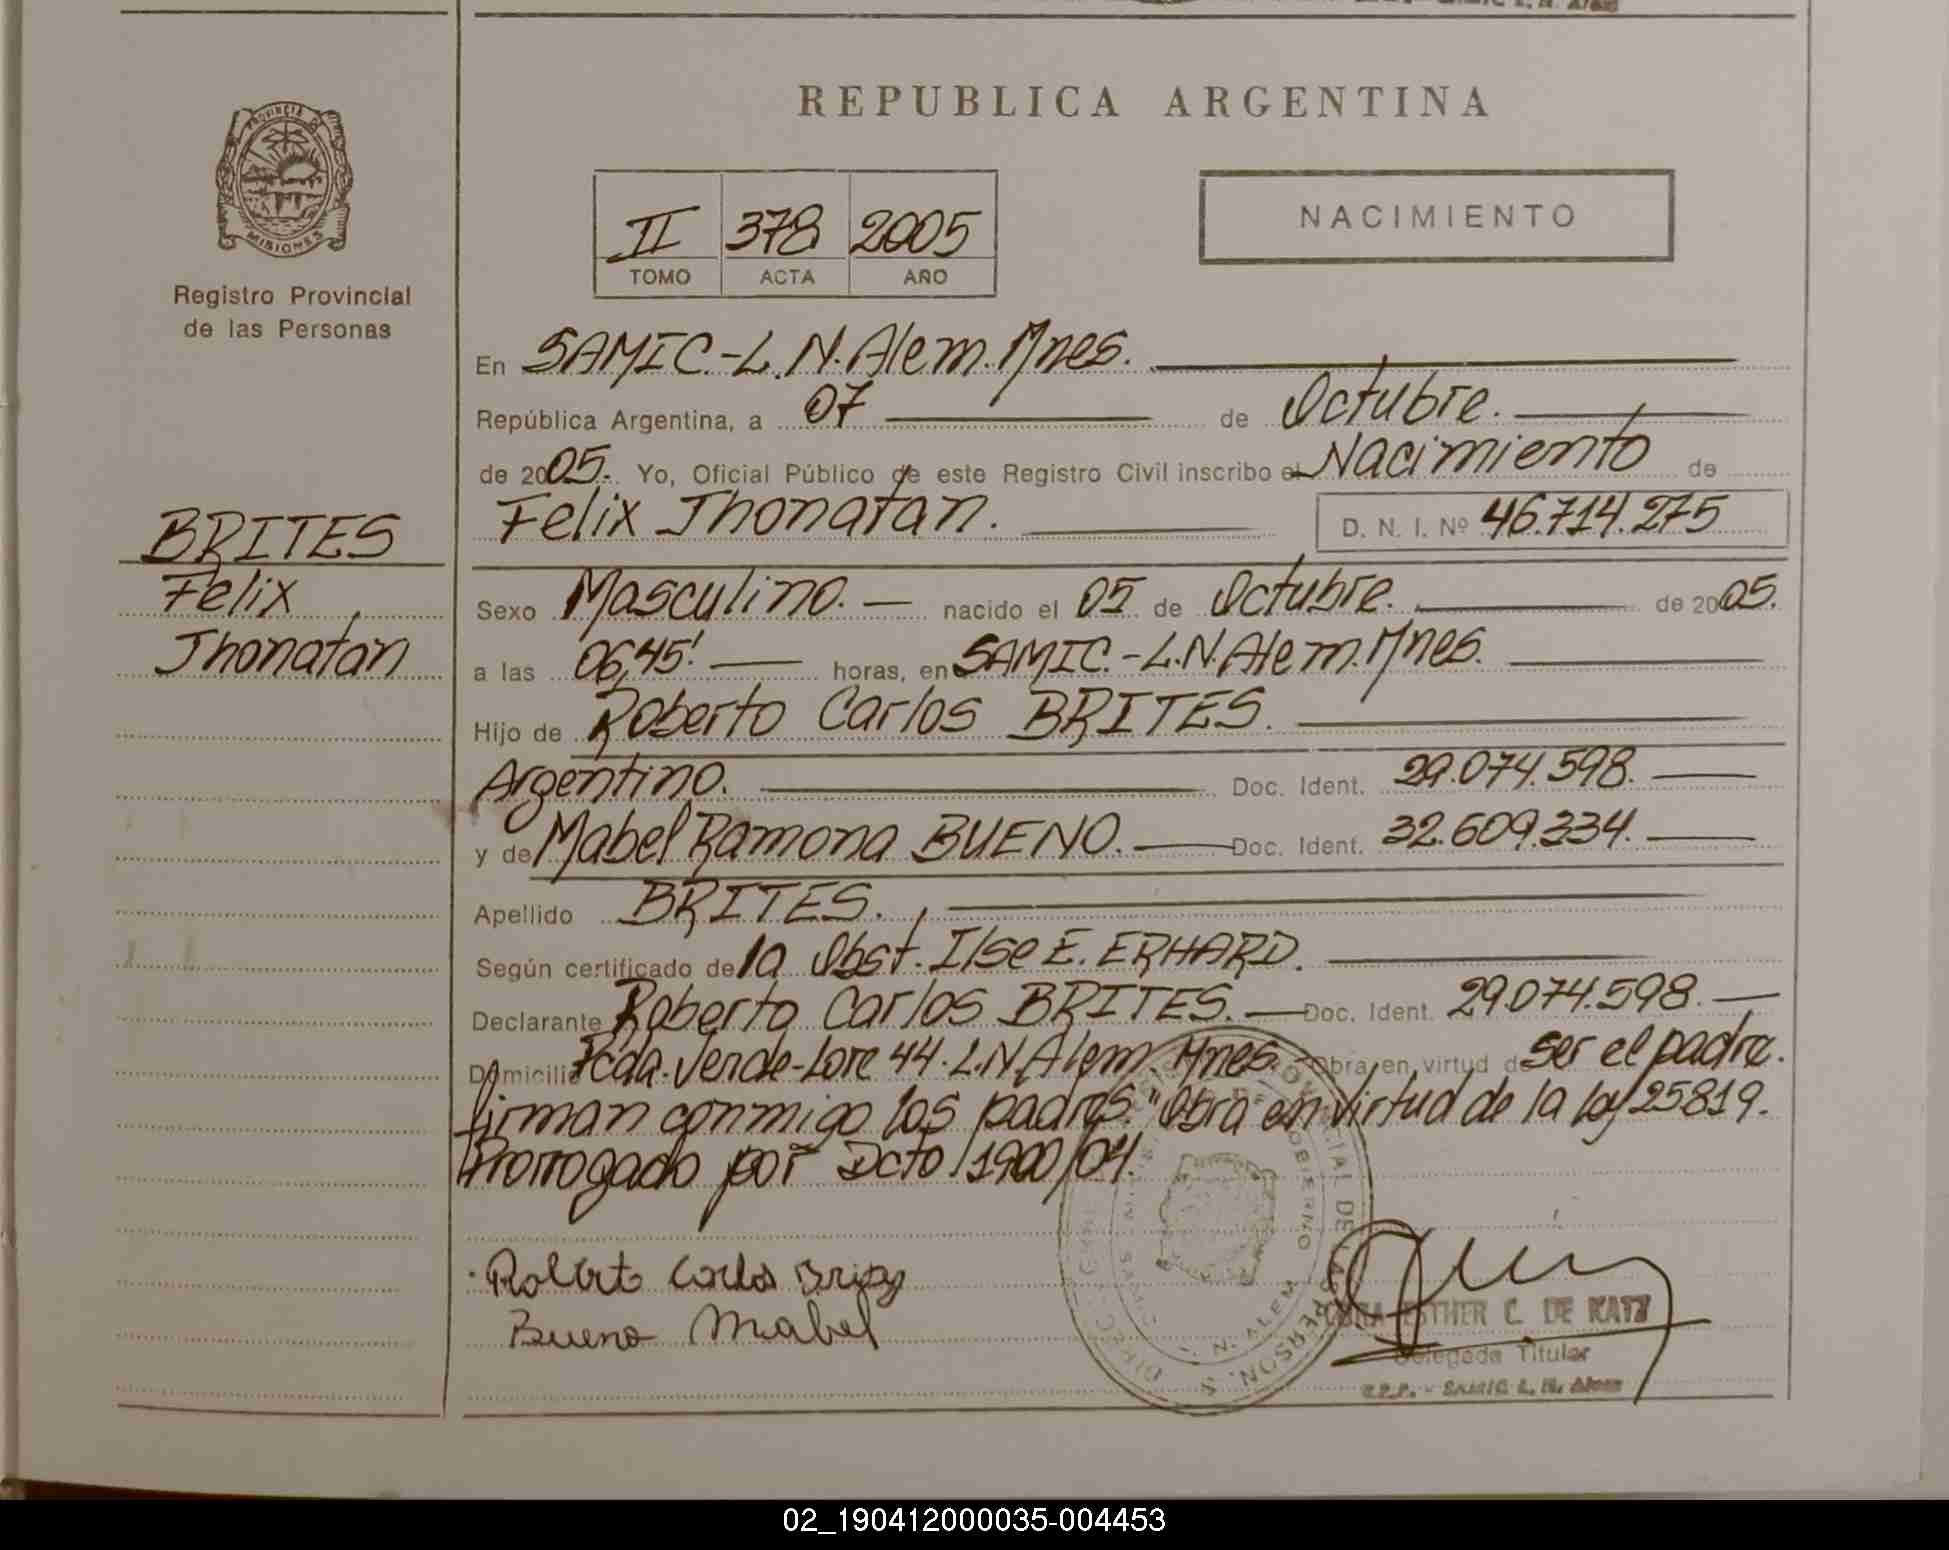 REPUBLICA ARGENTINA
PROVINCIA DE
MISIONES
Registro Provincial
de las Personas
II 378 2005
TOMO ACTA AÑO
NACIMIENTO
BRITES
Felix
Jhonatan
En SAMIC.-L.N.Alem.Mnes.
República Argentina, a 07 de Octubre.
de 2005. Yo, Oficial Público de este Registro Civil inscribo el Nacimiento de
Felix Jhonatan. D. N. I. Nº 46.714.275
Sexo Masculino. nacido el 05 de Octubre. de 2005.
a las 06,45' horas, en SAMIC.-L.N.Alem.Mnes.
Hijo de Roberto Carlos BRITES.
Argentino. Doc. Ident. 29.074.598.
y de Mabel Ramona BUENO. Doc. Ident. 32.609.334.
Apellido BRITES.
Según certificado de la Obst. Ilse E. ERHARD.
Declarante Roberto Carlos BRITES. Doc. Ident. 29.074.598.
Domicilio Pcda. Verde-Lote 44. L.N.Alem. Mnes. Obra en virtud de ser el padre.
firman conmigo los padres. "Obra en virtud de la ley 25819.
Prorrogado por Dcto. 1900/04.
Roberto Carlos
Bueno Mabel
ESTHER C. DE KATZ
Delegada Titular
R.P.P. - SAMIC L. N. Alem
02_190412000035-004453